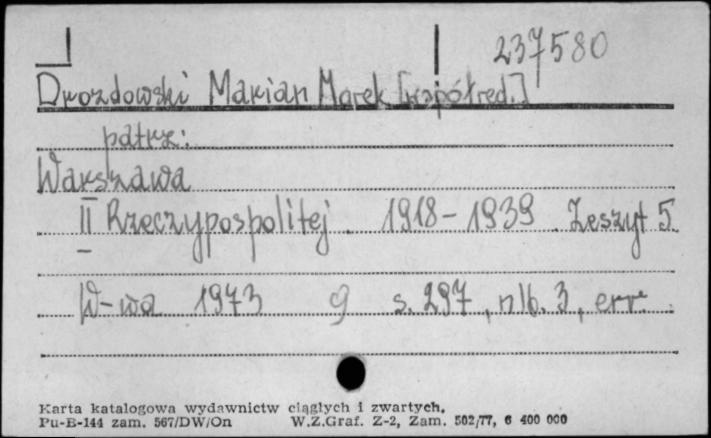 237580
Drozdowski Marian Marek [współred.]
patrz:
Warszawa
II Rzeczypospolitej. 1918-1939. Zeszyt 5.
W-wa 1973 8 s. 297, nlb. 3, err.
Karta katalogowa wydawnictw ciągłych i zwartych.
Pu-B-144 zam. 567/DW/On W.Z.Graf. Z-2, Zam. 502/77, 6 400 000